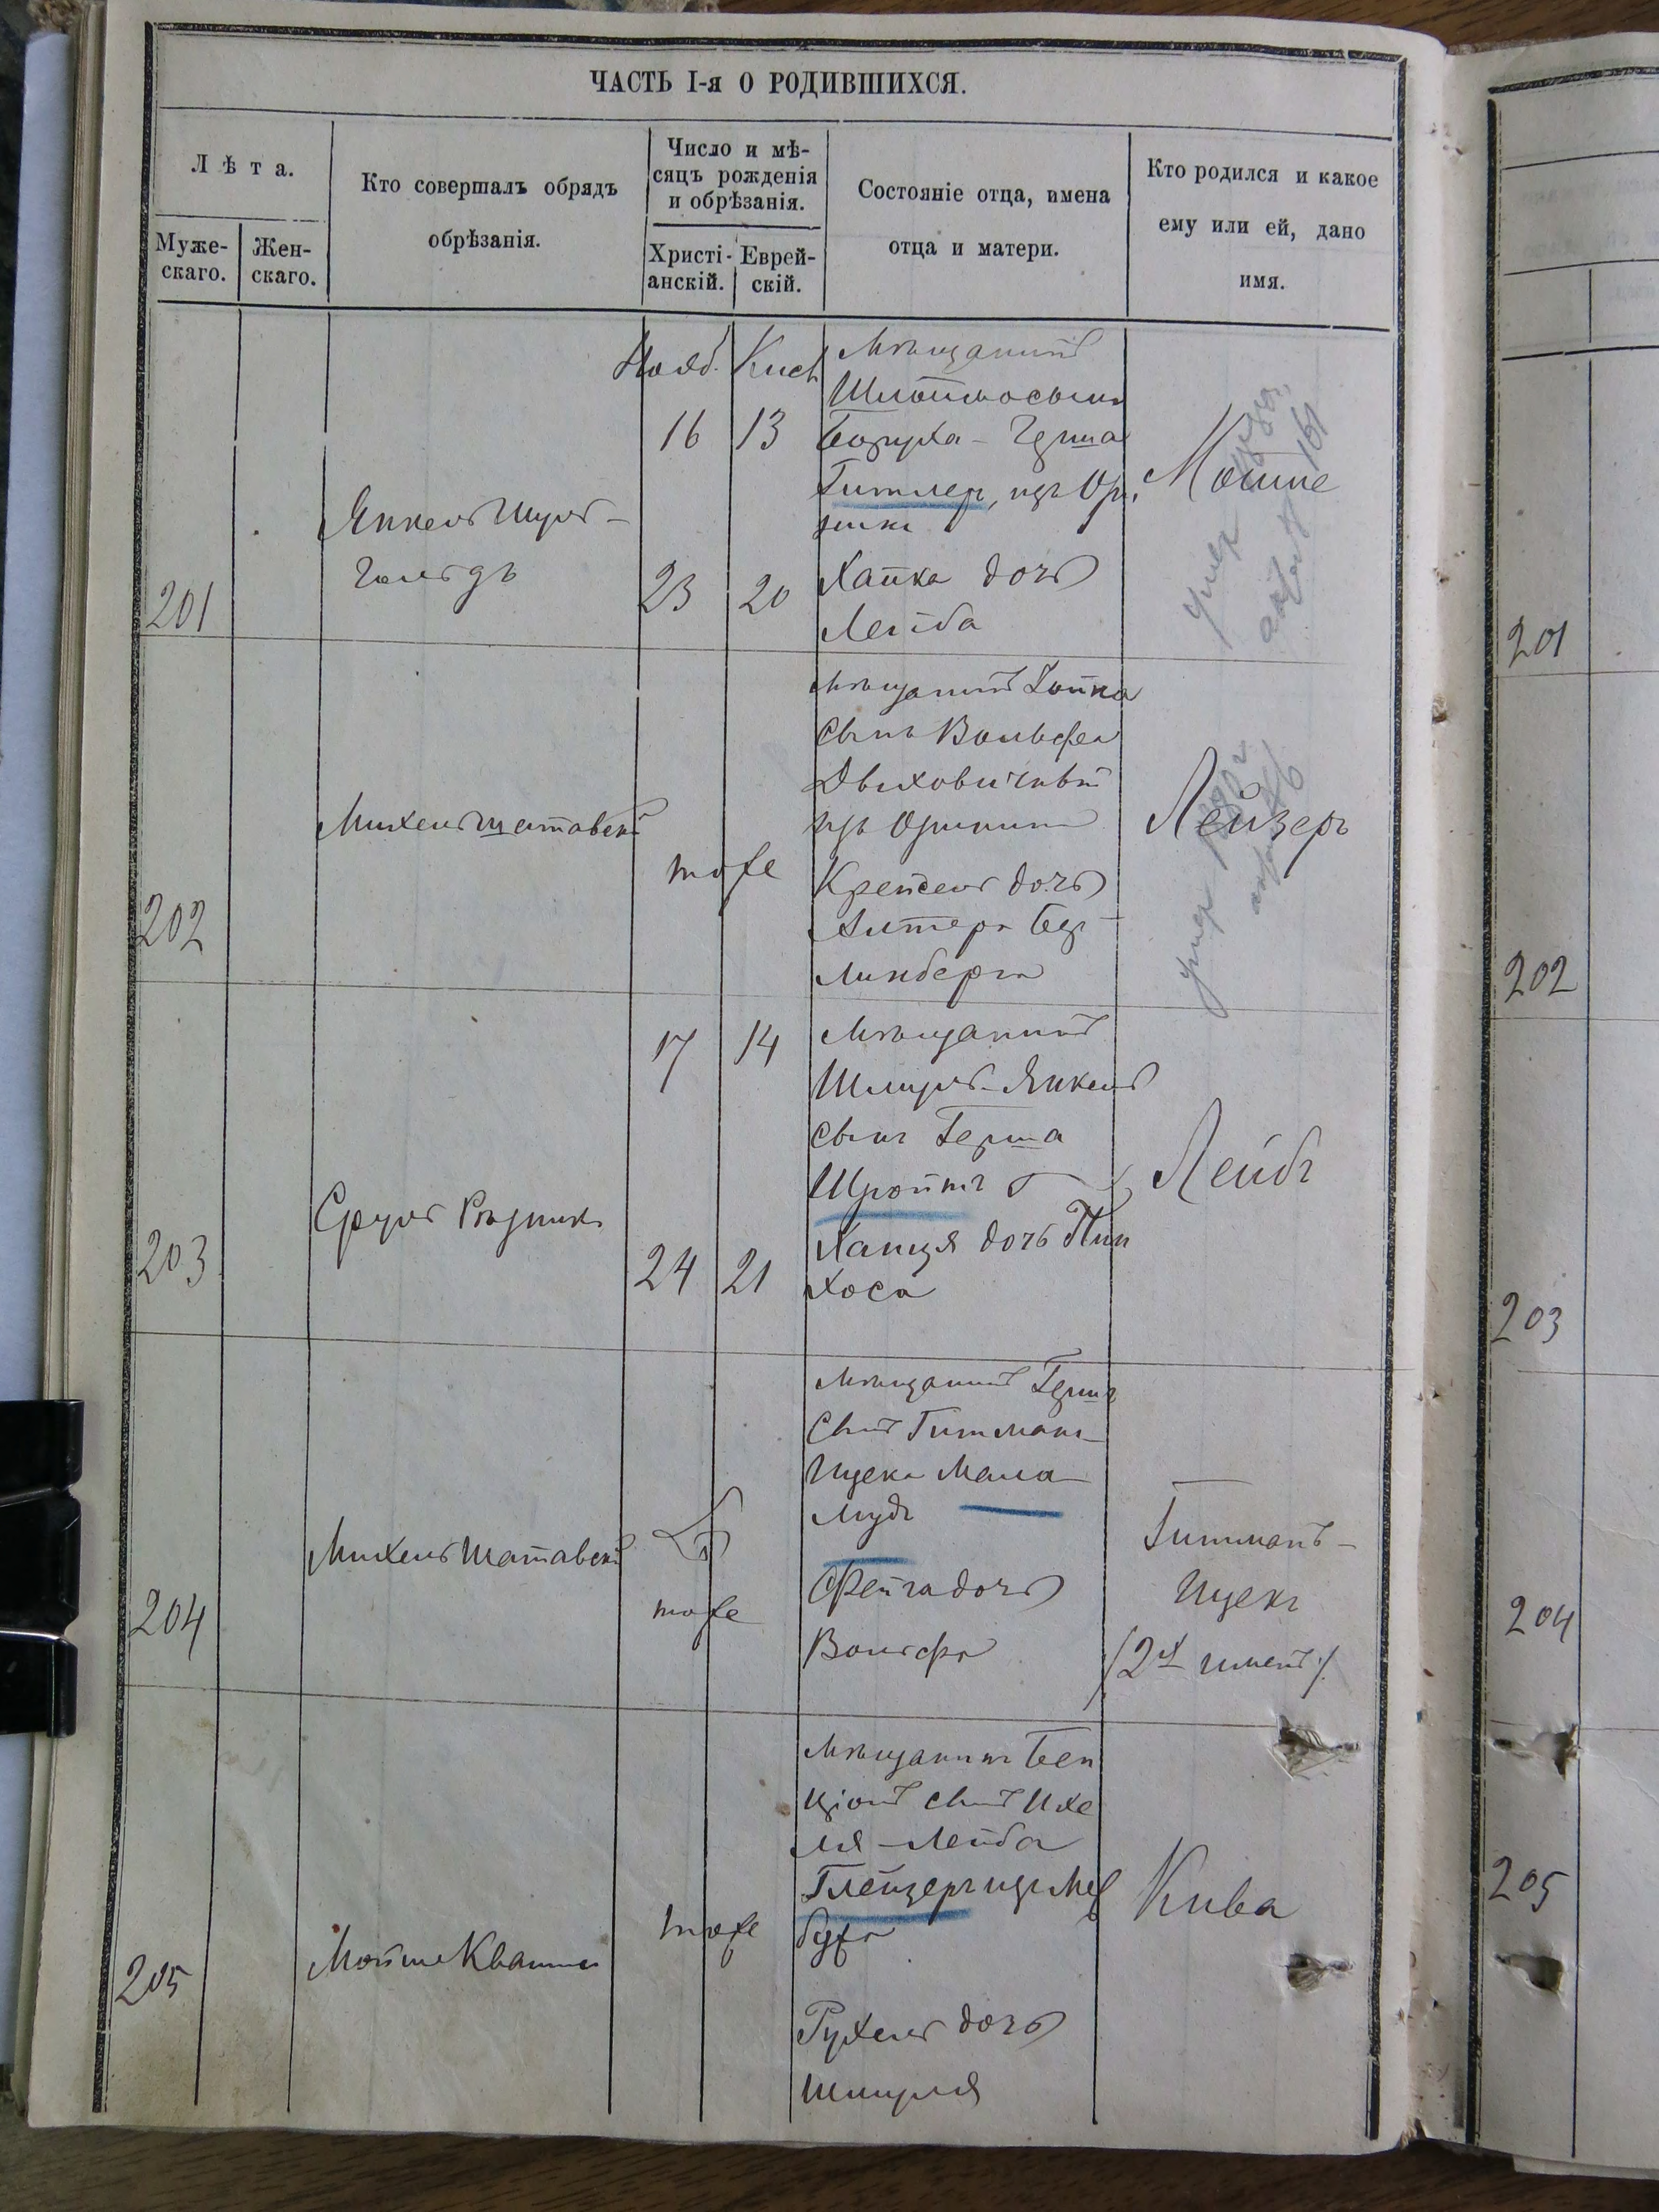 ЧАСТЬ I-я О РОДИВШИХСЯ.
Лѣта.
Муже-
скаго.
Жен-
скаго.
Кто совершалъ обрядъ
обрѣзанія.
Число и мѣ-
сяцъ рожденія
и обрѣзанія.
Христі-
анскій.
Еврей-
скій.
Состояніе отца, имена
отца и матери.
Кто родился и какое
ему или ей, дано
имя.
201
Янкель Шуль-
16
23
13
20
Мѣщанинъ
Боруха - Герша
Гитлеръ, изъ Ори
нина
Хайка дочь
Лейба
Мошке
умер
202
Михель Шатавскій
тоже
Мѣщанинъ
сынъ Вольфа
изъ Оринина
Крейсель дочь
Альтера Бер-
линберга
Лейзеръ
умер
203
Сруль Рѣзникъ
17
24
14
21
Мѣщанинъ
Шмуль-Янкель
сынъ Герша
Шройтъ
Хайця дочь Пин
хоса
Лейбъ
204
Михель Шатавскій
тоже
Мѣщанинъ Гершъ
сынъ Гитмана-
Ицека Мала-
мудъ
Фейга дочь
Вольфа
Гитманъ-
Ицекъ
/2х именъ/
205
Мойше
тоже
Мѣщанинъ Бен
ціонъ сынъ Ихе
ля-Лейба
Глейзеръ изъ Меджи
божа
Рухель дочь
Шмуля
Кива
201
202
203
204
205